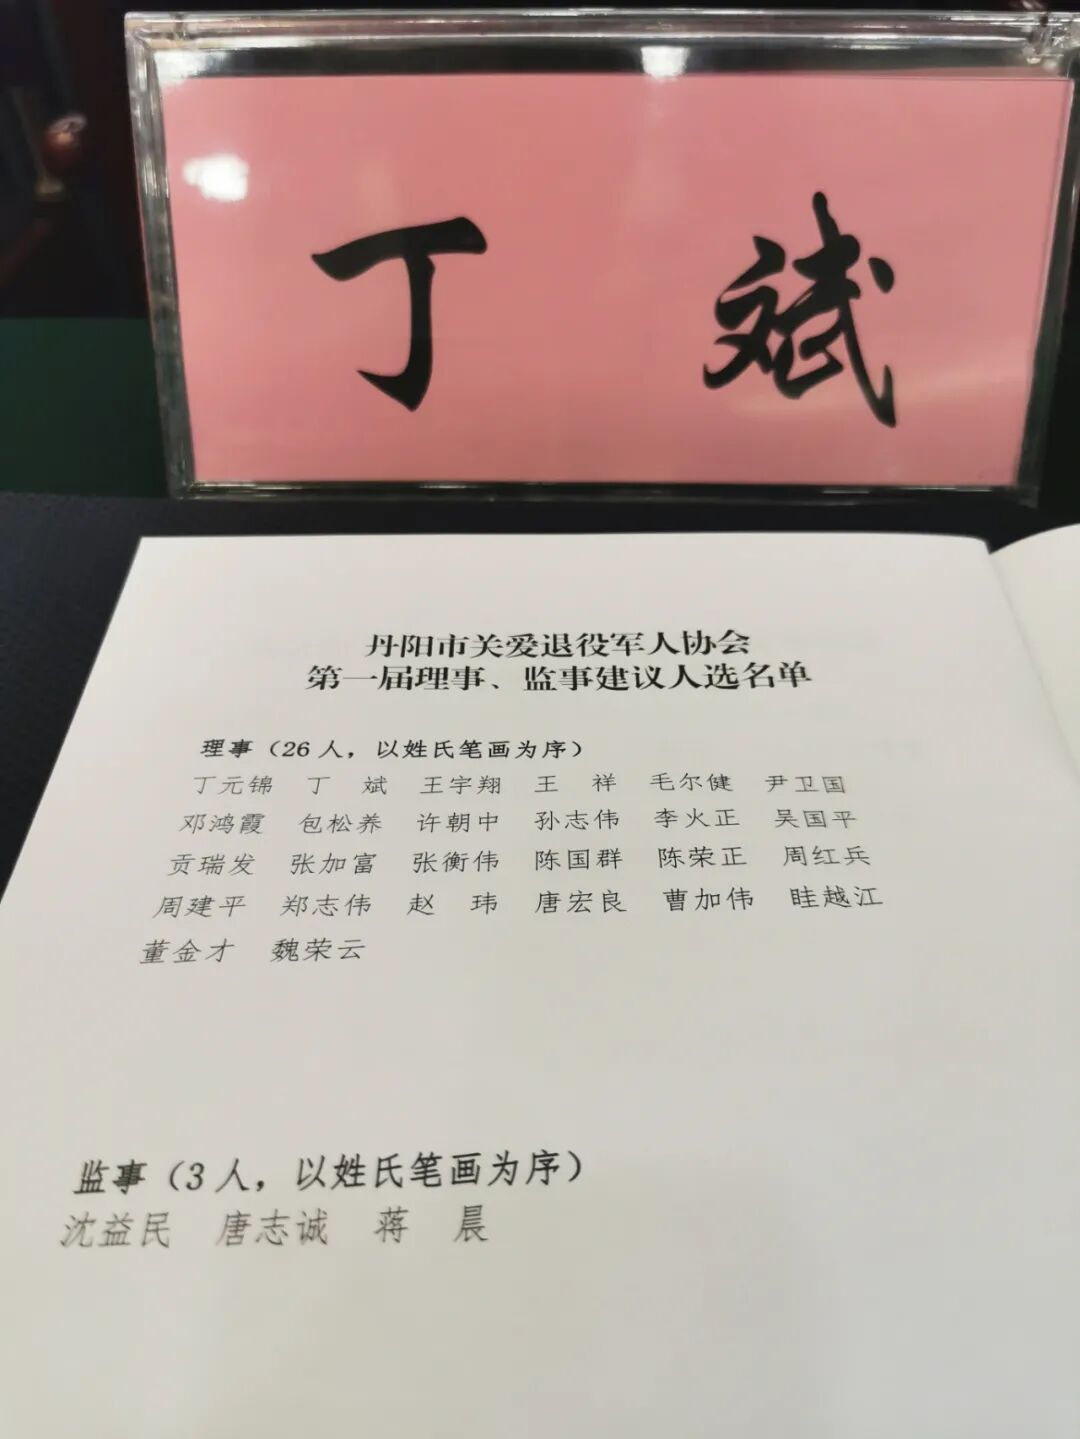 丁 斌
丹阳市关爱退役军人协会
第一届理事、监事建议人选名单
理事（26人，以姓氏笔画为序）
丁元锦 丁 斌 王宇翔 王 祥 毛尔健 尹卫国
邓鸿霞 包松养 许朝中 孙志伟 李火正 吴国平
贡瑞发 张加富 张衡伟 陈国群 陈荣正 周红兵
周建平 郑志伟 赵 玮 唐宏良 曹加伟 眭越江
董金才 魏荣云
监事（3人，以姓氏笔画为序）
沈益民 唐志诚 蒋 晨